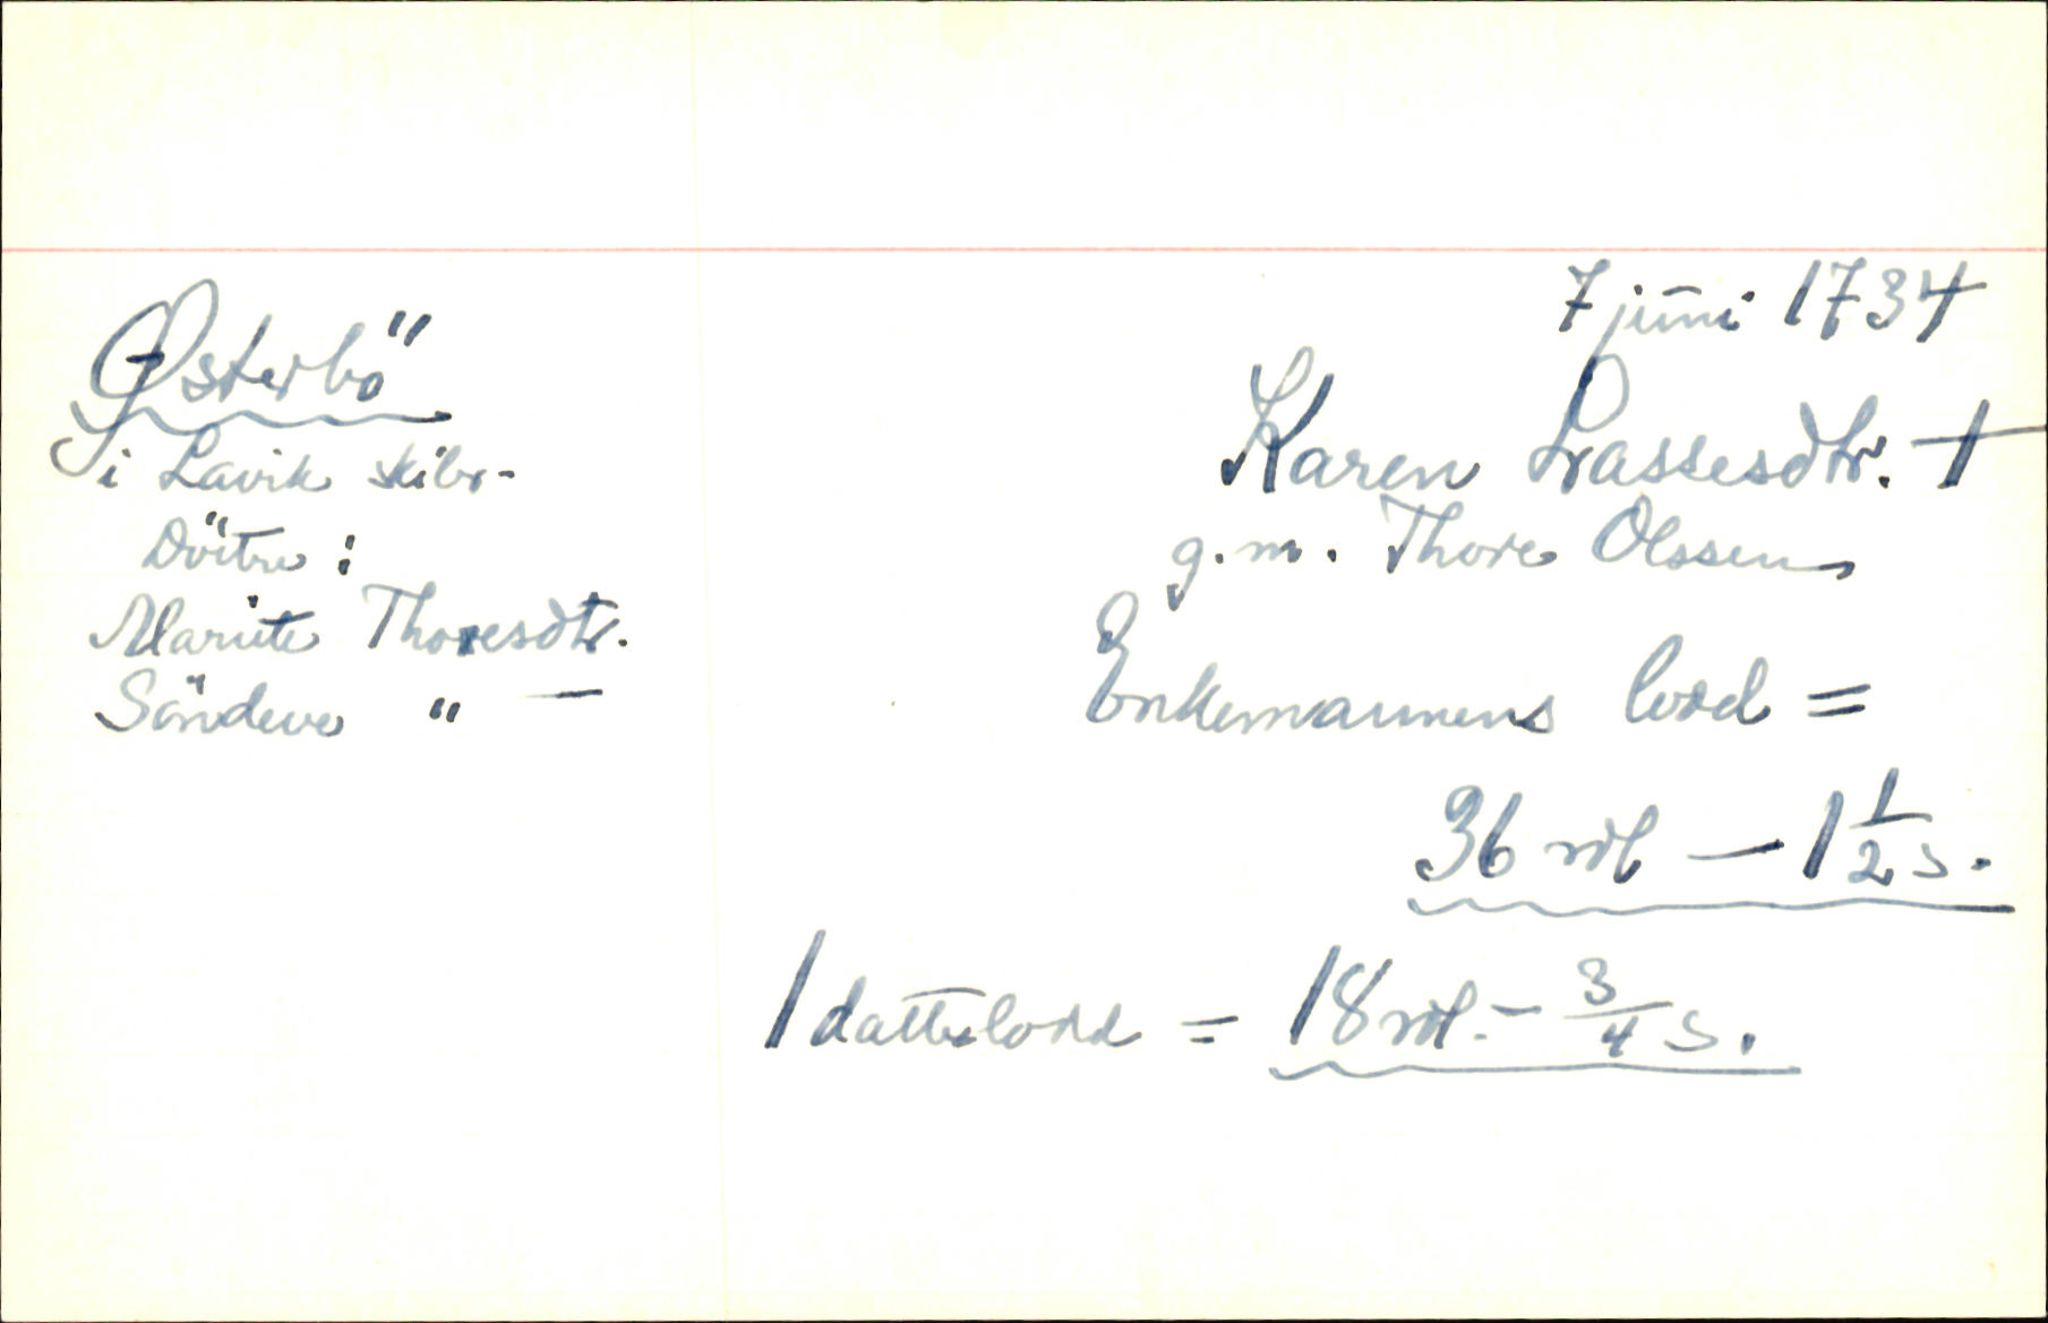 7 juni 1734
Østerbö
i Lavik skibr-
Dötre :
Marite Thoresdtr.
Söndeve " —
Karen Lassesdtr. †
g.m. Thore Olssen
Enkemannens lodd =
36 rdl — 1 1/2 s.
1 datterlodd = 18 rdl. - 3/4 s.